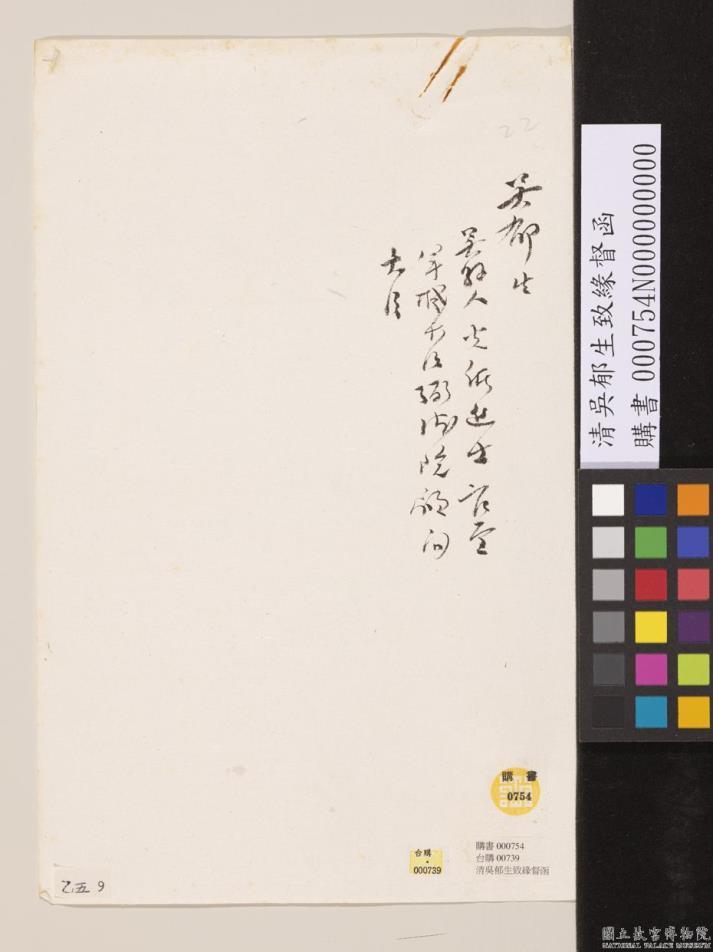 22
吳郁生
吳縣人光緒進士官至
軍機大臣弼德院顧問
大臣
清吳郁生致緣督函
購書 000754N000000000
購書
0754
台購
000739
購書 000754
台購 00739
清吳郁生致緣督函
乙.五 9
國立故宮博物院
NATIONAL PALACE MUSEUM